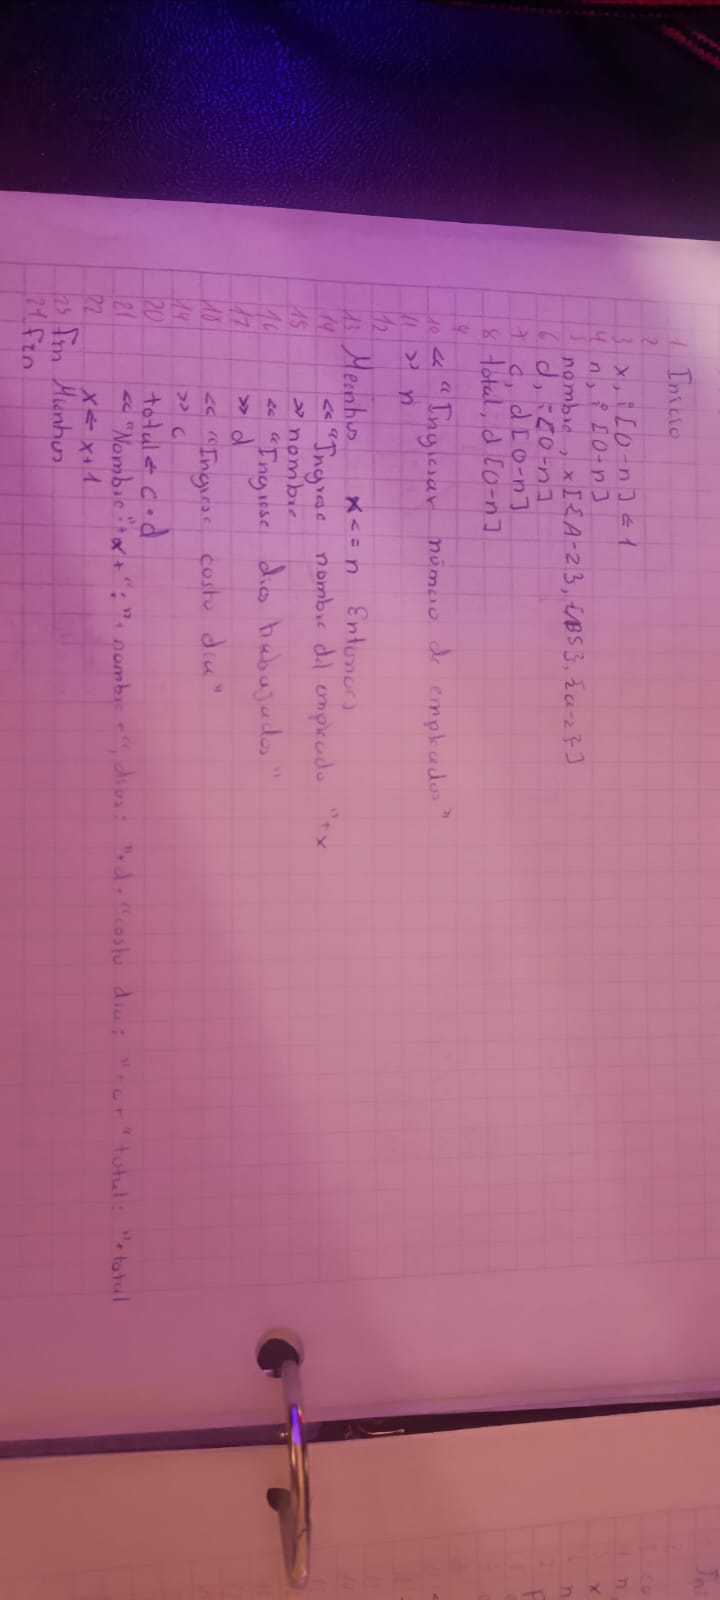 1 Inicio
2
3 x, i [0-n] ← 1
4 n, i [0-n]
5 nombre, x [{A-Z}, {BS}, {a-z}]
6 d, i [0-n]
7 c, d [0-n]
8 total, d [0-n]
9
10 << "Ingresar número de empleados"
11 >> n
12
13 Mientras x <= n Entonces
14 << "Ingrese nombre del empleado "+x
15 >> nombre
16 << "Ingrese dias trabajados"
17 >> d
18 << "Ingrese costo dia"
19 >> c
20 total ← c * d
21 << "Nombre"+x+":"+nombre+", dias: "+d+"costo dia: "+c+"total: "+total
22 x ← x+1
23 Fin Mientras
24 Fin